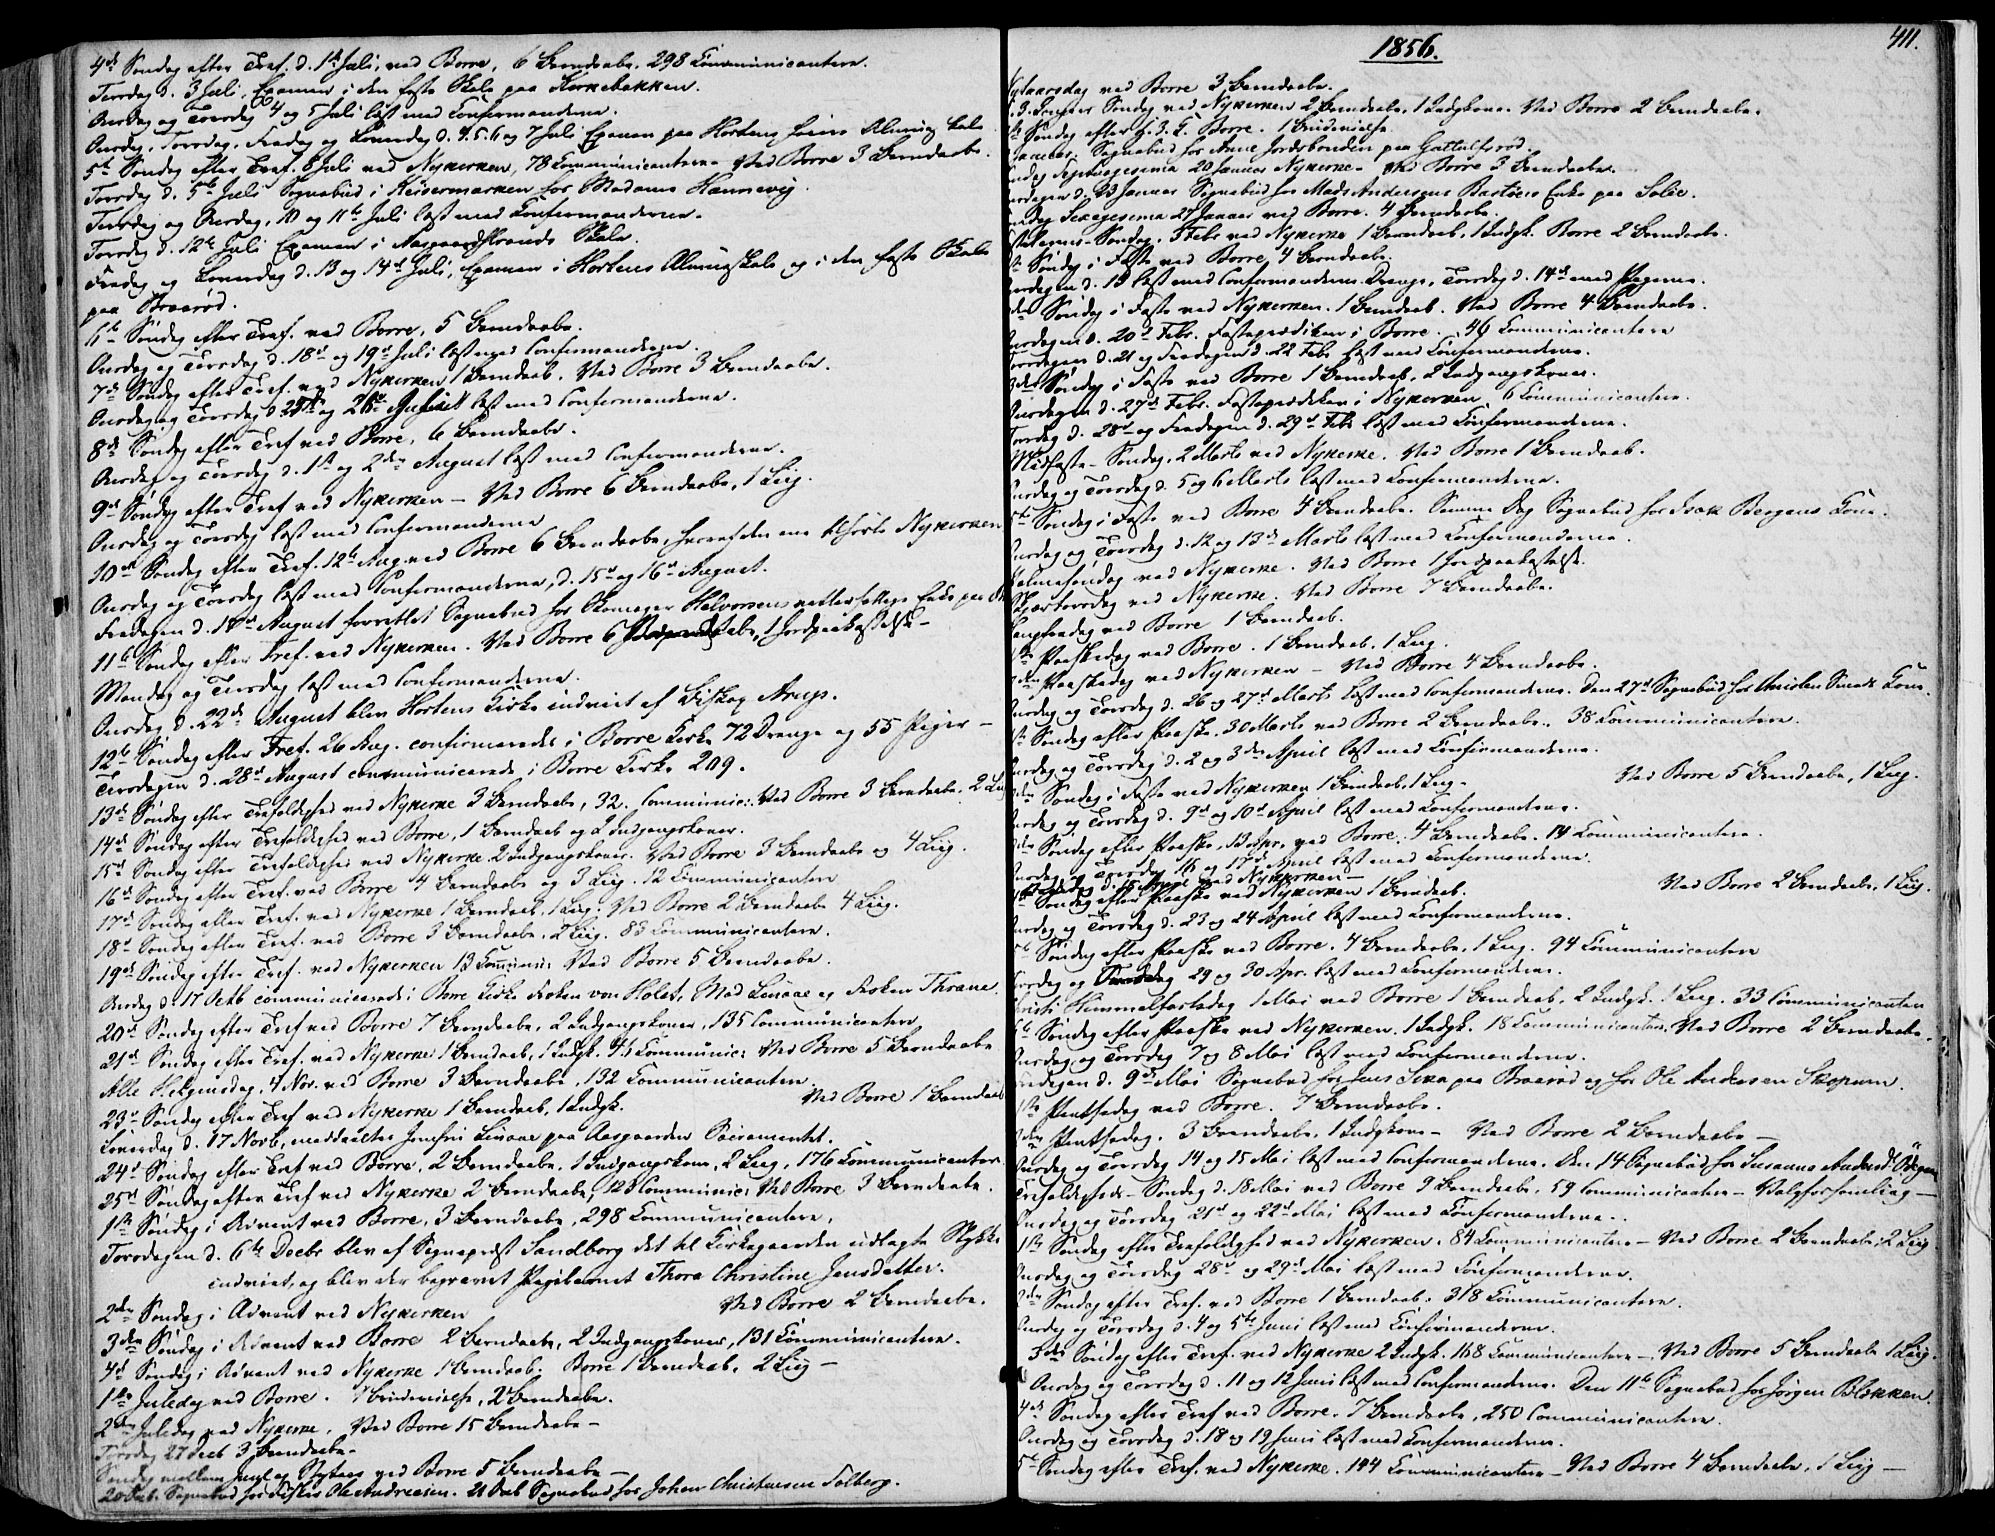 4de Søndag efter Tref. d. 1ste Juli, ved Borre, 6 Barnedaabe. 298 Communicantere.
Tirsdag d. 3 Juli, Examen i den faste Skole paa Kirkebakken.
Onsdag og Torsdag 4 og 5 Juli læst med Confirmanderne.
Onsdag, Torsdag, Fredag og Løverdag d. 4. 5. 6 og 7 Juli Examen paa Hortens høiere Almueskole.
5te Søndag efter Tref. 8 Juli ved Nykirken, 78 Communicantere. Ved Borre 3 Barnedaabe.
Torsdag d. 5te Juli Sognebud i Keisermarken for Madame Hannevig.
Tirsdag og Onsdag, 10 og 11te Juli læst med Confirmanderne.
Torsdag d. 12te Juli Examen i Aasgaardstrands Skole.
Fredag og Løverdag d. 13 og 14de Juli, Examen i Hortens Almueskole og i den faste Skole
paa Braarød.
6te Søndag efter Tref. ved Borre, 5 Barnedaabe.
Onsdag og Torsdag d. 18de og 19de Juli læst med Confirmanderne.
7de Søndag efter Tref. ved Nykirken 1 Barnedaab. Ved Borre 3 Barnedaabe.
Onsdag og Torsdag d. 25 og 26de Juli læst med Confirmanderne.
8de Søndag efter Tref ved Borre, 6 Barnedaabe.
Onsdag og Torsdag d. 1ste og 2den August læst med Confirmanderne.
9de Søndag efter Tref ved Nykirken – Ved Borre 6 Barnedaabe, 1 Liig.
Onsdag og Torsdag læst med Confirmanderne
10de Søndag efter Tref. 12te Aug ved Borre 6 Barnedaabe, hvoraf den ene tilhørte Nykirken
Onsdag og Torsdag læst med Confirmanderne, d. 15de og 16de August.
Fredagen d. 17de August forrettet Sognebud for Skomager Halvorsens Enke paa
11te Søndag efter Tref. ved Nykirken. Ved Borre 6 Barnedaabe, 1 Jordpaakastelse –
Mandag og Tirsdag læst med Confirmanderne.
Onsdag d. 22de August blev Hortens Kirke indviet af Biskop Arup.
12te Søndag efter Tref. 26 Aug. confirmerede i Borre Kirke 72 Drenge og 55 Piger –
Tirsdagen d. 28de August communicerede i Borre Kirke 209.
13de Søndag efter Trefoldighed ved Nykirke 3 Barnedaabe, 32 Communic: Ved Borre 3 Barnedaabe. 2 Liig
14de Søndag efter Trefoldighed ved Borre, 1 Barnedaab og 2 Indgangskoner.
15de Søndag efter Trefoldighed ved Nykirke 2 Indgangskoner. Ved Borre 3 Barnedaabe og 4 Liig.
16de Søndag efter Tref. ved Borre 4 Barnedaabe og 3 Liig. 12 Communicantere
17de Søndag efter Tref. ved Nykirke 1 Barnedaab, 1 Liig. Ved Borre 2 Barnedaabe 4 Liig.
18de Søndag efter Tref. ved Borre 3 Barnedaabe, 2 Liig. 83 Communicantere.
19de Søndag efter Tref. ved Nykirken 13 Communic: Ved Borre 5 Barnedaabe.
Onsdag d. 17 Octb communicerede i Borre Kirke Frøken von Holst, Mad Linaae og Frøken Thrane.
20de Søndag efter Tref ved Borre 7 Barnedaabe, 2 Indgangskoner, 135 Communicantere
21de Søndag efter Tref. ved Nykirke 1 Barnedaab, 1 Indgk. 41 Communic: Ved Borre 5 Barnedaabe
Alle Helgensdag, 4 Nov. ved Borre 3 Barnedaabe, 132 Communicantere.
23de Søndag efter Tref ved Nykirke 1 Barnedaab, 1 Indgk. Ved Borre 1 Barnedaab
Løverdag d. 17 Novb, meddeeltes Jomfru Linaae paa Aasgaarden Sacramentet.
24de Søndag efter Tref ved Borre, 2 Barnedaabe, 1 Indgangskone, 2 Liig, 176 Communicantere
25de Søndag efter Tref ved Nykirke 2 Barnedaabe, 123 Communic: Ved Borre 3 Barnedaabe.
1ste Søndag i Advent ved Borre, 3 Barnedaabe, 298 Communicantere,
Torsdagen d. 6te Decbr blev af Sognepræst Sandborg det til Kirkegaarden udlagte Stykke
indviet, og blev der begravet Pigebarnet Thora Christine Jensdatter.
2den Søndag i Advent ved Nykirken Ved Borre 2 Barnedaabe.
3die Søndag i Advent ved Borre 2 Barnedaabe, 2 Indgangskoner, 131 Communicantere.
4de Søndag i Advent ved Nykirke 1 Barnedaab. Borre 1 Barnedaab, 2 Liig –
1ste Juledag ved Borre. 1 Brudevielse, 2 Barnedaabe.
2den Juledag ved Nykirke. Ved Borre 15 Barnedaabe –
Torsdag 27 Decb 3 Barnedaabe.
Søndag mellem Juul og Nytaar ved Borre 5 Barnedaabe –
20 Decb. Sognebud for Fisker Ole Andreasen. 21 Decb Sognebud for Johan Christensen Solberg.
411.
1856.
Nytaarsdag ved Borre 3 Barnedaabe.
H. 3. Kongers Søndag ved Nykirken 2 Barnedaabe, 1 Indgkone. Ved Borre 2 Barnedaabe.
1ste Søndag efter H. 3. K. Borre. 1 Brudevielse
Januar. Sognebud for Anne Jordsbonden paa Gattulfsrød.
Søndag Septuagesima 20 Januar Nykirke – Ved Borre 3 Barnedaabe.
Onsdagen d. 23 Januar Sognebud for Mads Andersens Bastøens Enke paa Solie.
Søndag Sexagesima 27 Januar ved Borre. 4 Barnedaabe.
Fastelavns-Søndag. 3 Febr ved Nykirke 1 Barnedaab, 1 Indgk. Borre 2 Barnedaabe.
1ste Søndag i Faste ved Borre, 4 Barnedaabe.
Onsdagen d. 13 læst med Confirmanderne Drenge, Torsdag d. 14de med Pigerne.
2den Søndag i Faste ved Nykirken. 1 Barnedaab. Ved Borre 4 Barnedaabe.
Onsdagen d. 20de Febr. Fasteprædiken i Borre. 46 Communicantere
Torsdagen d. 21 og Fredagen d. 22 Febr læst med Confirmanderne.
3die Søndag i Faste ved Borre 1 Barnedaab, 2 Indgangskoner.
Onsdagen d. 27de Febr. Fasteprædiken i Nykirken 6 Communicantere.
Torsdag d. 28de og Fredagen d. 29de Febr læst med Confirmanderne.
Midfaste-Søndag. 2 Marts ved Nykirke. Ved Borre 1 Barnedaab.
Onsdag og Torsdag d. 5 og 6 Marts læst med Confirmanderne.
5te Søndag i Faste ved Borre 4 Barnedaabe. Samme Dag Sognebud for Isak Bergans Kone.
Onsdag og Torsdag d. 12 og 13de Marts læst med Confirmanderne.
Palmesøndag ved Nykirke. Ved Borre 1 Jordpaakastelse.
Skjærtorsdag ved Nykirke. Ved Borre 7 Barnedaabe.
Langfredag ved Borre 1 Barnedaab.
1ste Paaskedag ved Borre. 1 Barnedaab, 1 Liig.
2den Paaskedag ved Nykirken – Ved Borre 4 Barnedaabe.
Onsdag og Torsdag d. 26 og 27de Marts læst med Confirmanderne. Den 27de Sognebud for Christen Smeds Kone.
1ste Søndag efter Paaske. 30 Marts ved Borre 2 Barnedaabe. 38 Communicantere.
Onsdag og Torsdag d. 2 og 3die April læst med Confirmanderne.
2den Søndag i Faste ved Nykirken 1 Barnedaab, 1 Liig – Ved Borre 5 Barnedaabe, 1 Liig.
Onsdag og Torsdag d. 9de og 10de April læst med Confirmanderne.
3die Søndag efter Paaske, 13 Apr. ved Borre. 4 Barnedaabe. 14 Communicantere.
Onsdag og Torsdag 16 og 17de April læst med Confirmanderne.
ved Nykirken –
4de Søndag efter Paaske ved Nykirken 1 Barnedaab. Ved Borre 2 Barnedaabe, 1 Liig.
Onsdag og Torsdag d. 23 og 24 April læst med Confirmanderne.
5te Søndag efter Paaske ved Borre. 4 Barnedaabe, 1 Liig. 94 Communicantere
Tirsdag og Onsdag 29 og 30 Apr. læst med Confirmanderne.
Christi Himmelfartsdag 1 Mai ved Borre 1 Barnedaab, 2 Indgk. 1 Liig. 33 Communicanter
6te Søndag efter Paaske ved Nykirken. 1 Indgk. 18 Communicanter. Ved Borre 2 Barnedaabe.
Onsdag og Torsdag 7 og 8 Mai læst med Confirmanderne.
Fredagen d. 9de Mai Sognebud for Jens Sexa paa Braarød og for Ole Andersen Skopum.
1ste Pintsedag ved Borre. 7 Barnedaabe.
2den Pintsedag. 3 Barnedaabe. 1 Indgkone – Ved Borre 2 Barnedaabe –
Onsdag og Torsdag 14 og 15 Mai læst med Confirmanderne. Den 14 Sognebud for Susanne Andersdt. Ødegaarden
Trefoldigheds-Søndag d. 18 Mai ved Borre 9 Barnedaabe. 59 Communicantere – Valgforsamling –
Onsdag og Torsdag 21de og 22de Mai læst med Confirmanderne.
1ste Søndag efter Trefoldighed ved Nykirken. 84 Communicantere – Ved Borre 2 Barnedaabe, 2 Liig
Onsdag og Torsdag 28de og 29de Mai læst med Confirmanderne.
2den Søndag efter Tref. ved Borre 1 Barnedaab. 318 Communicantere.
Onsdag og Torsdag d. 4 og 5te Juni læst med Confirmanderne.
3die Søndag efter Tref. ved Nykirke 2 Indgk. 168 Communicantere – Ved Borre 5 Barnedaabe 1 Liig.
Onsdag og Torsdag d. 11 og 12 Juni læst med Confirmanderne. Den 11te Sognebud for Jørgen Blokken.
4de Søndag efter Tref ved Borre. 7 Barnedaabe, 250 Communicantere.
Onsdag og Torsdag d. 18 og 19 Juni læst med Confirmanderne.
5te Søndag efter Tref. ved Nykirke. 144 Communicantere – Ved Borre 4 Barnedaabe, 1 Liig –